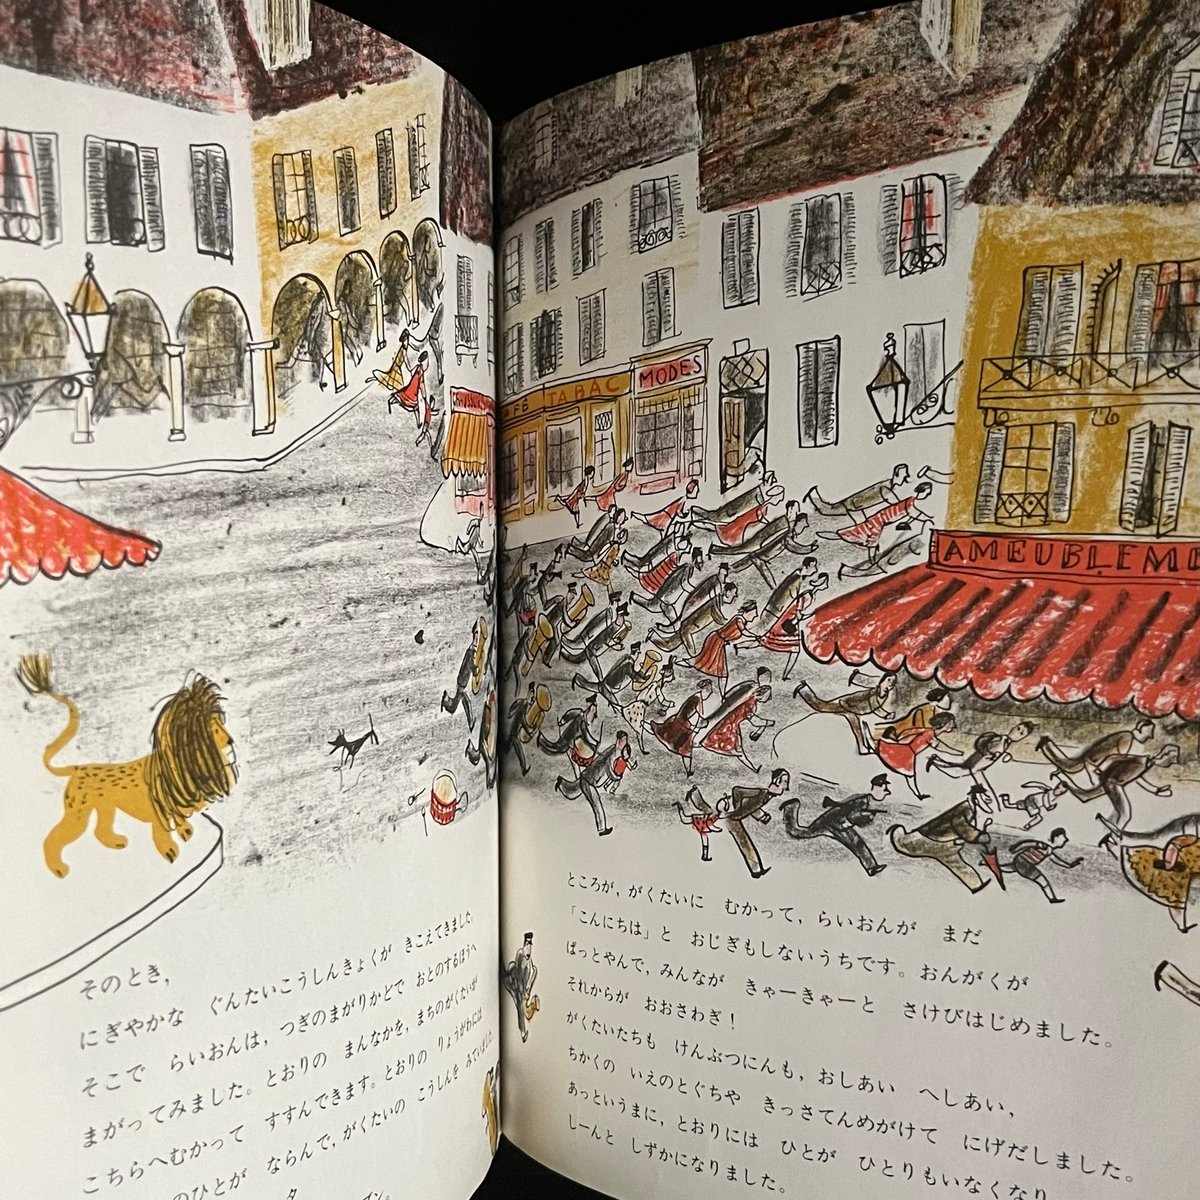 CAFÉ TABAC
MODES
AMEUBLEME
そのとき,
にぎやかな ぐんたいこうしんきょくが きこえてきました。
そこで らいおんは, つぎのまがりかどで おとのするほうへ
まがってみました。とおりの まんなかを, まちのがくたいが
こちらへむかって すすんできます。とおりの りょうがわには
のひとが ならんで, がくたいの こうしんを みていました。
ところが, がくたいに むかって, らいおんが まだ
「こんにちは」と おじぎもしないうちです。おんがくが
ぱっとやんで, みんなが きゃーきゃーと さけびはじめました。
それからが おおさわぎ！
がくたいたちも けんぶつにんも, おしあい へしあい,
ちかくの いえのとぐちや きっさてんめがけて にげだしました。
あっというまに, とおりには ひとが ひとりもいなくなり
しーんと しずかになりました。